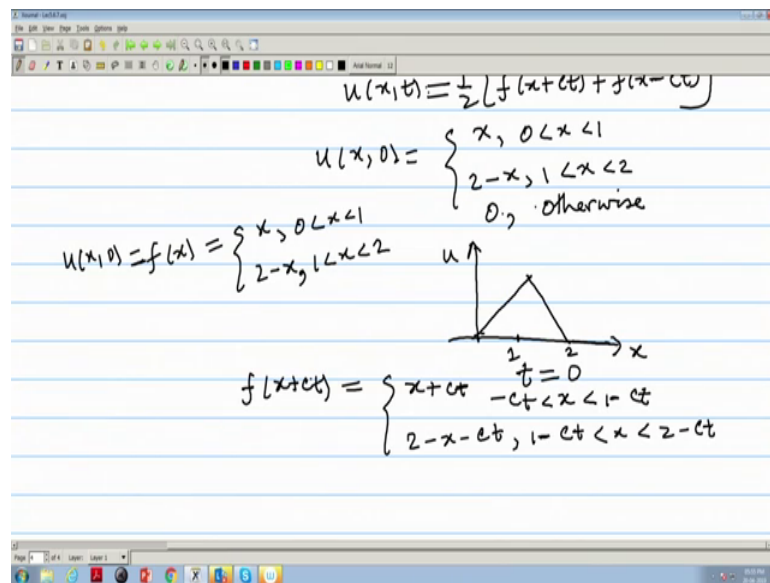 Journal - Lec5,6,7.xoj
File Edit View Page Tools Options Help
Arial Normal 12
u(x,t) = 1/2 [f(x+ct) + f(x-ct)]
u(x,0) = { x, 0<x<1
2-x, 1<x<2
0, otherwise
u(x,0) = f(x) = { x, 0<x<1
2-x, 1<x<2
u
1 2 x
t = 0
f(x+ct) = { x+ct -ct<x<1-ct
2-x-ct, 1-ct<x<2-ct
Page 4 of 4 Layer: Layer 1